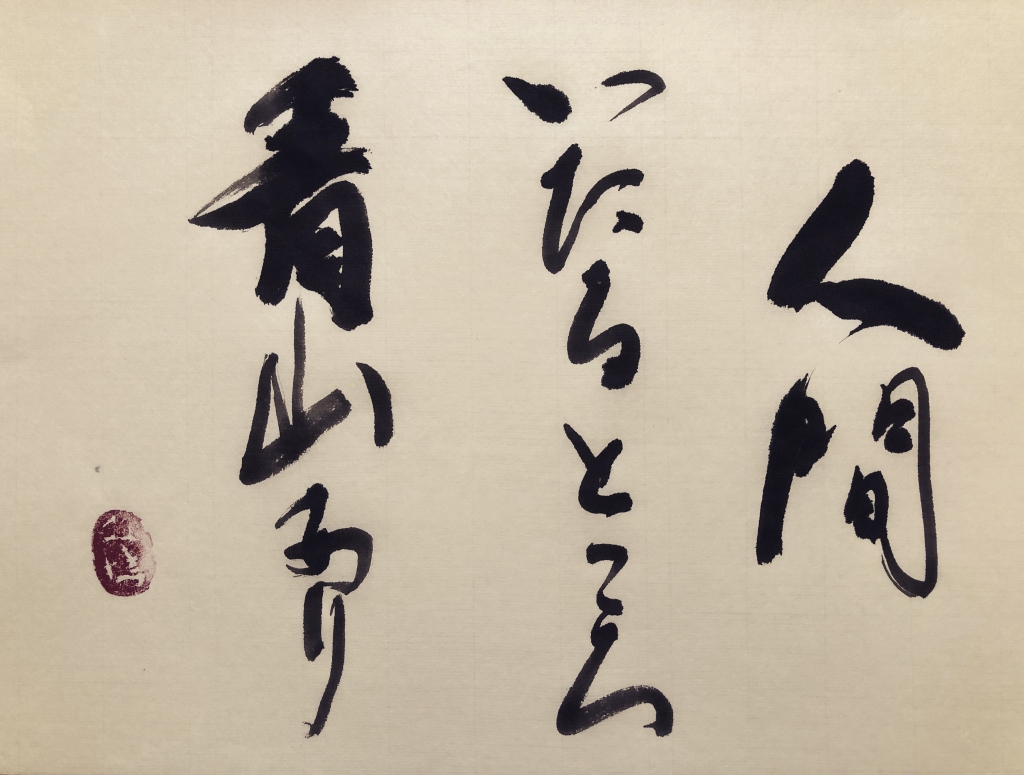 人間
いたるところ
青山あり